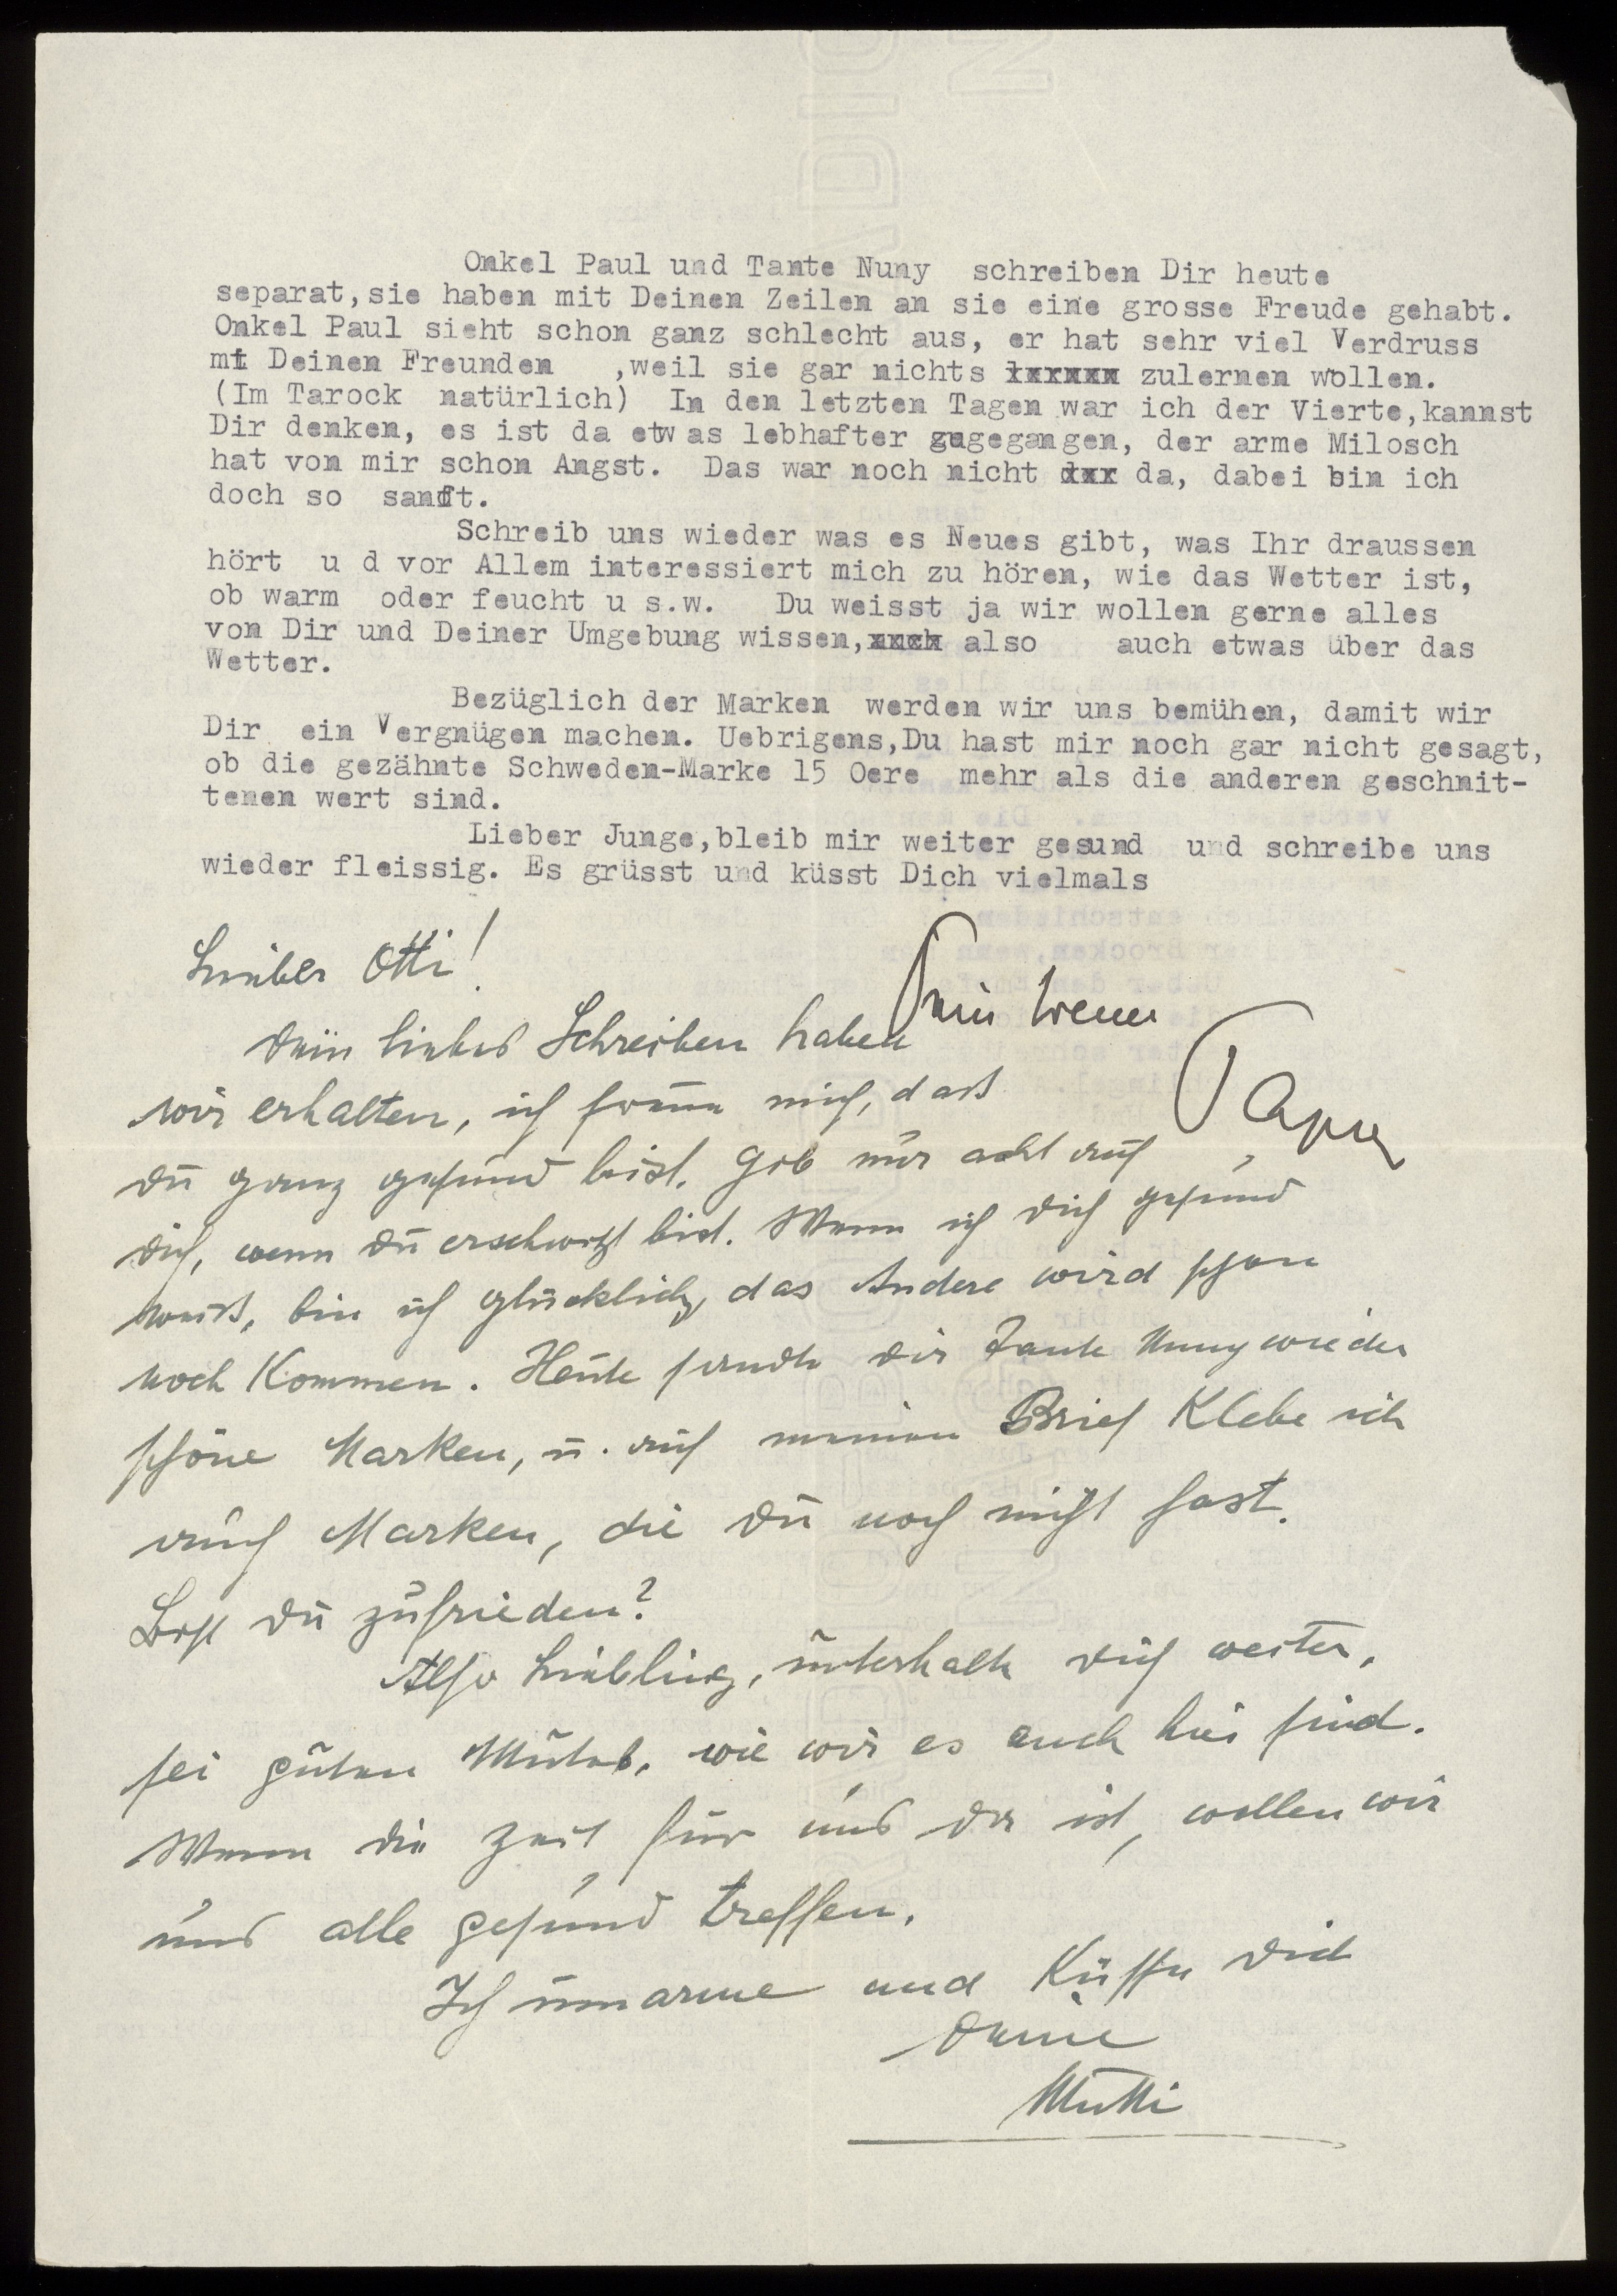 Onkel Paul und Tante Nuny schreiben Dir heute
separat, sie haben mit Deinen Zeilen an sie eine grosse Freude gehabt.
Onkel Paul sieht schon ganz schlecht aus, er hat sehr viel Verdruss
mt Deinen Freunden ,weil sie gar nichts zulernen wollen.
(Im Tarock natürlich) In den letzten Tagen war ich der Vierte,kannst
Dir denken, es ist da etwas lebhafter zugegangen, der arme Milosch
hat von mir schon Angst. Das war noch nicht da, dabei bin ich
doch so sanft.
Schreib uns wieder was es Neues gibt, was Ihr draussen
hört u d vor Allem interessiert mich zu hören, wie das Wetter ist,
ob warm oder feucht u s.w. Du weisst ja wir wollen gerne alles
von Dir und Deiner Umgebung wissen, also auch etwas über das
Wetter.
Bezüglich der Marken werden wir uns bemühen, damit wir
Dir ein Vergnügen machen. Uebrigens,Du hast mir noch gar nicht gesagt,
ob die gezähnte Schweden-Marke 15 Oere mehr als die anderen geschnit-
tenen wert sind.
Lieber Junge,bleib mir weiter gesund und schreibe uns
wieder fleissig. Es grüsst und küsst Dich vielmals
Dein treuer
Papa
Lieber Otti!
Dein liebes Schreiben haben
wir erhalten, ich freue mich, daß
du ganz gesund bist. Gib nur acht auf
dich, wenn du erschwitzt bist. Wenn ich dich gesund
weiß, bin ich glücklich, das Andere wird schon
noch Kommen. Heute sandte dir Tante Nuny wieder
schöne Marken, u. auf meinen Brief Klebe ich
auch Marken, die du noch nicht hast.
Bist du zufrieden?
Also Liebling, unterhalte dich weiter,
sei guten Mutes, wie wir es auch hier sind.
Wenn die Zeit für uns da ist, wollen wir
uns alle gesund treffen.
Ich umarme und Küsse dich
deine
Mutti